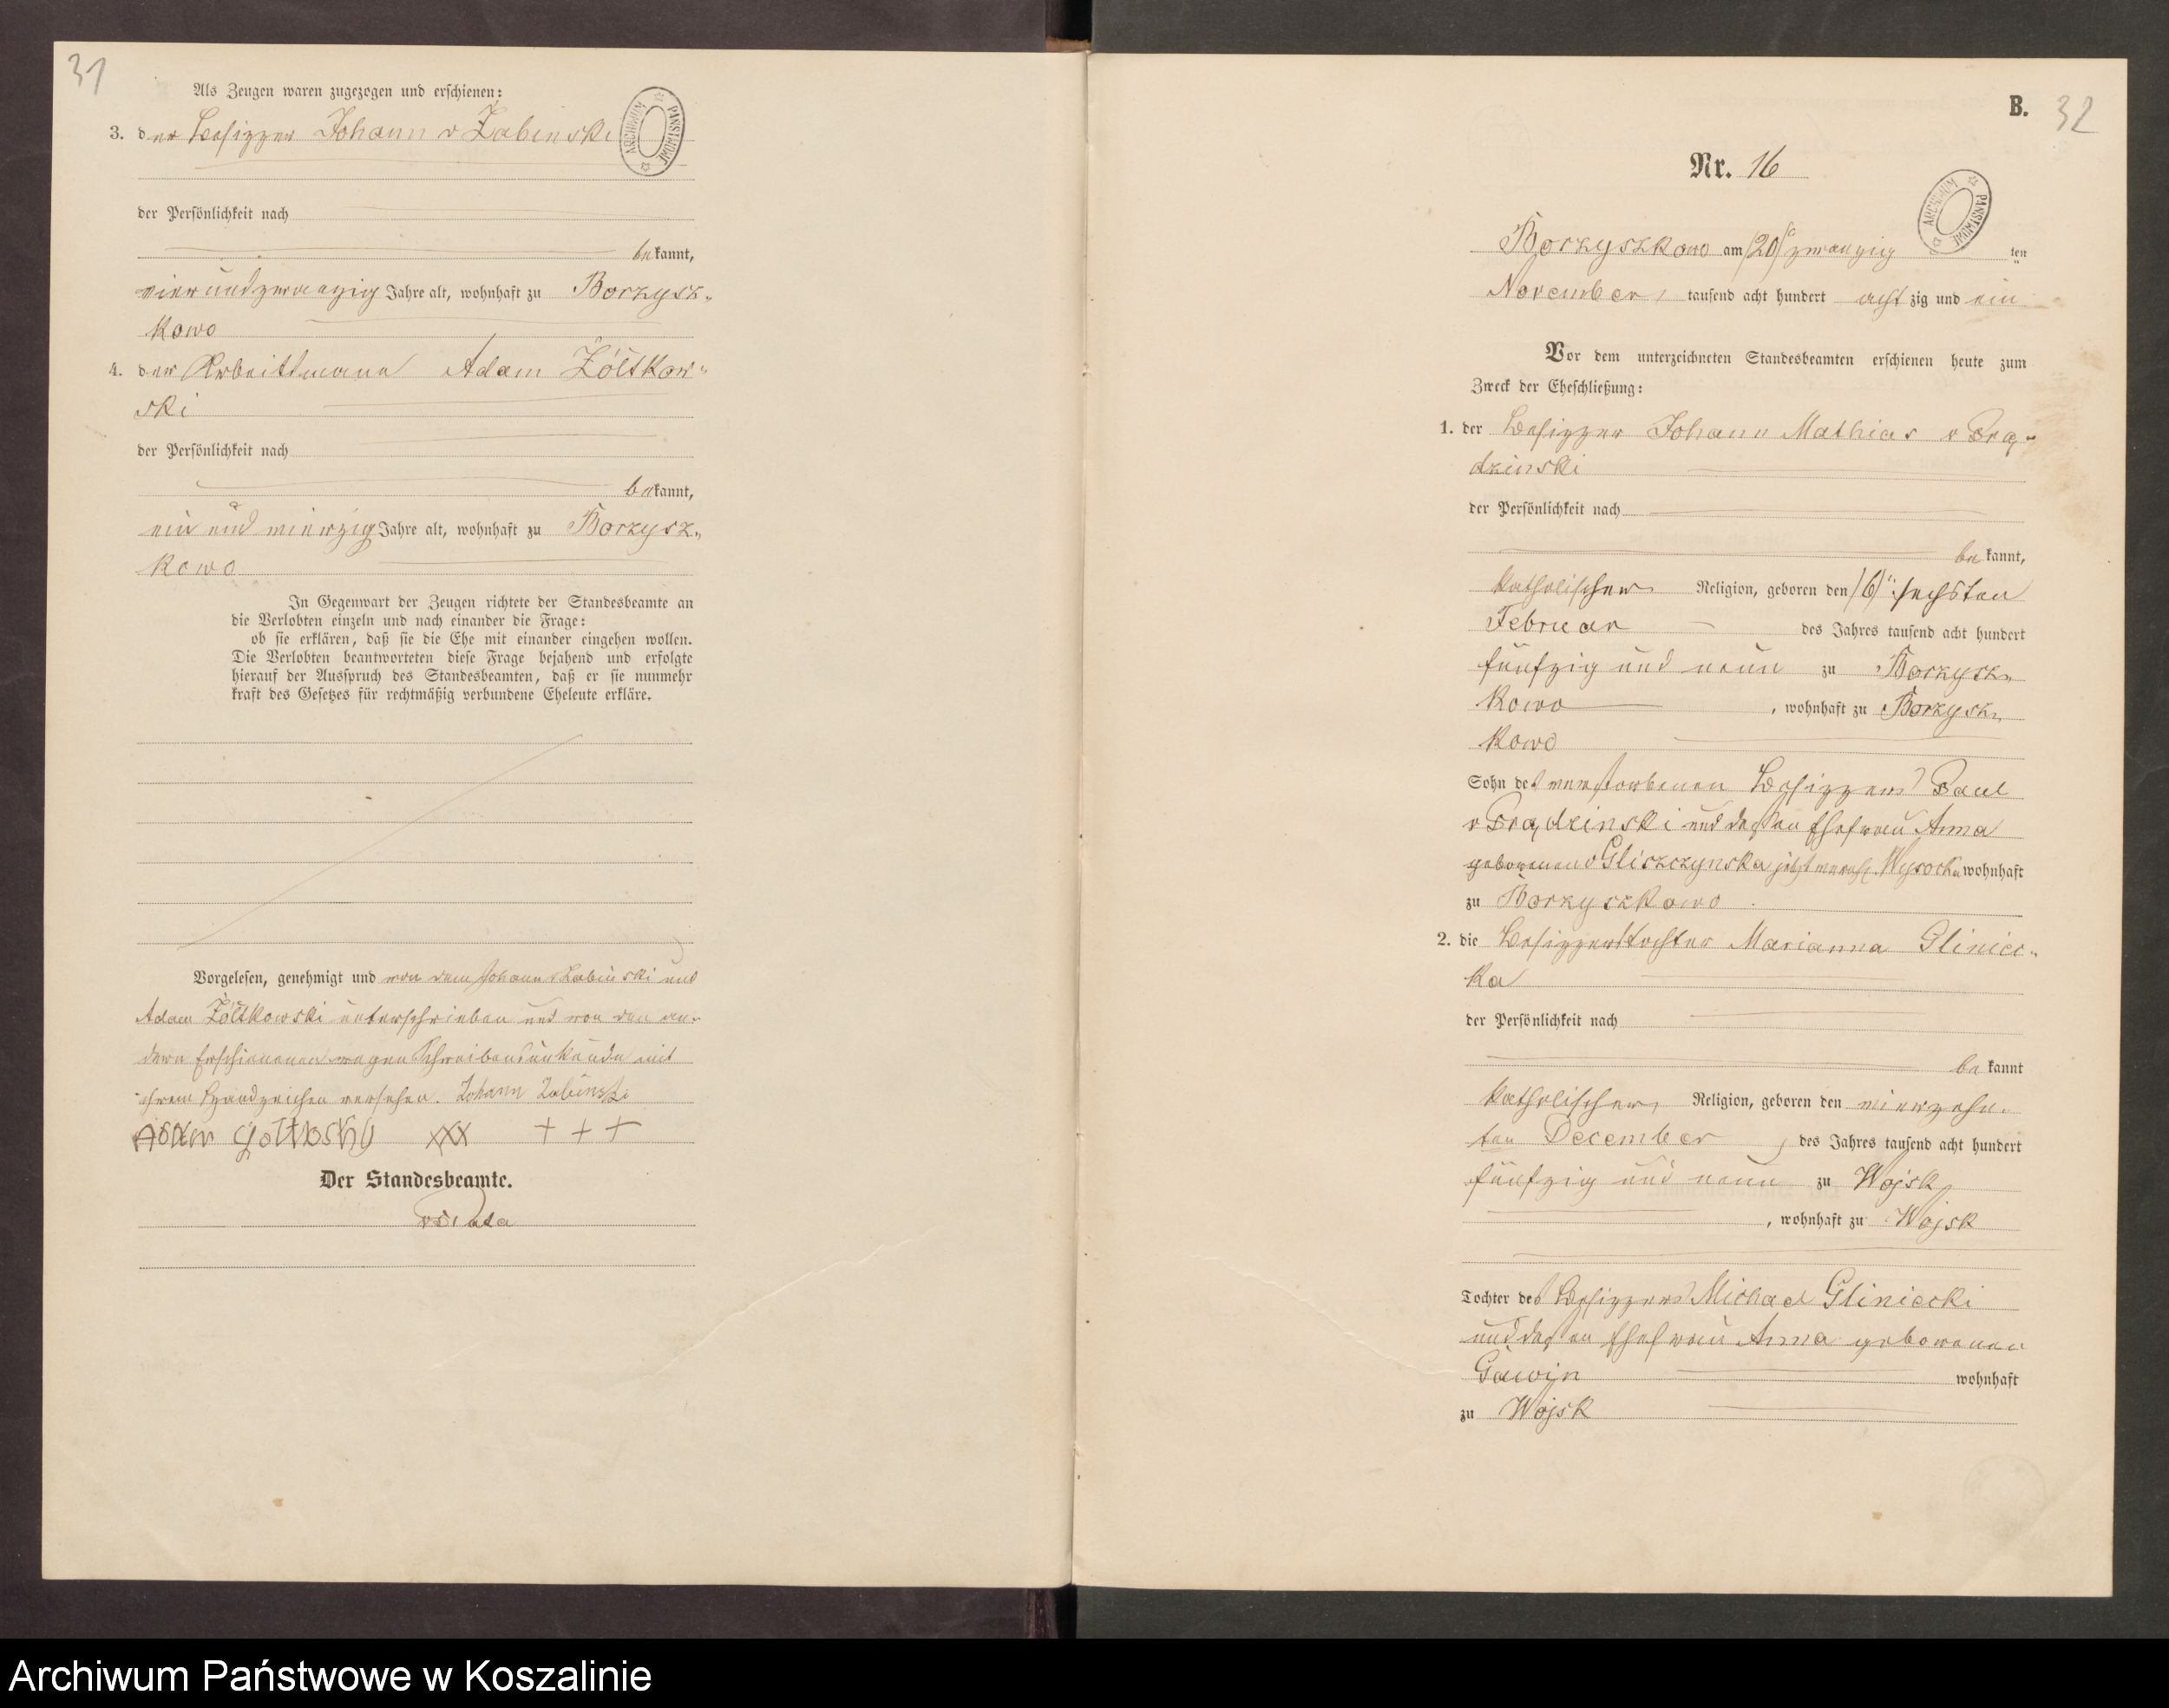 31
Als Zeugen waren zugezogen und erschienen:
3. der Besitzer Johann v Żabinski
ARCHIWUM PAŃSTWOWE
der Persönlichkeit nach
bekannt,
vierundzwanzig Jahre alt, wohnhaft zu Borzysz„
kowo
4. der Arbeitsmann Adam Żółtkow„
ski
der Persönlichkeit nach
bekannt,
ein und vierzig Jahre alt, wohnhaft zu Borzysz„
kowo
In Gegenwart der Zeugen richtete der Standesbeamte an
die Verlobten einzeln und nach einander die Frage:
ob sie erklären, daß sie die Ehe mit einander eingehen wollen.
Die Verlobten beantworteten diese Frage bejahend und erfolgte
hierauf der Ausspruch des Standesbeamten, daß er sie nunmehr
kraft des Gesetzes für rechtmäßig verbundene Eheleute erkläre.
Vorgelesen, genehmigt und von dem Johann v Żabinski und
Adam Żółtkowski unterschrieben und von den an„
dern Erschienenen wegen Schreibensunkunde mit
ihrem Handzeichen versehen. Johann Zabinski
XXX + + +
Der Standesbeamte.
B. 32
Nr. 16
ARCHIWUM PAŃSTWOWE
Borzyszkowo am (20) zwanzig ten
November tausend acht hundert acht zig und ein
Vor dem unterzeichneten Standesbeamten erschienen heute zum
Zweck der Eheschließung:
1. der Besitzer Johann Mathias v Prą„
dzinski
der Persönlichkeit nach
be kannt,
katholischer Religion, geboren den (6) sechsten
Februar des Jahres tausend acht hundert
fünfzig und neun zu Borzysz„
kowo , wohnhaft zu Borzysz„
kowo
Sohn des verstorbenen Besitzers Paul
v Prądzinski und dessen Ehefrau Anna
geborenen v Gliszczynska jetzt verehl. Wysocka wohnhaft
zu Borzyszkowo
2. die Besitzerstochter Marianna Gliniec„
ka
der Persönlichkeit nach
be kannt
katholischer Religion, geboren den vierzehn„
ten December des Jahres tausend acht hundert
fünfzig und neun zu Wojsk
, wohnhaft zu Wojsk
Tochter des Besitzers Michael Gliniecki
und dessen Ehefrau Anna geborenen
Gawin wohnhaft
zu Wojsk
Archiwum Państwowe w Koszalinie